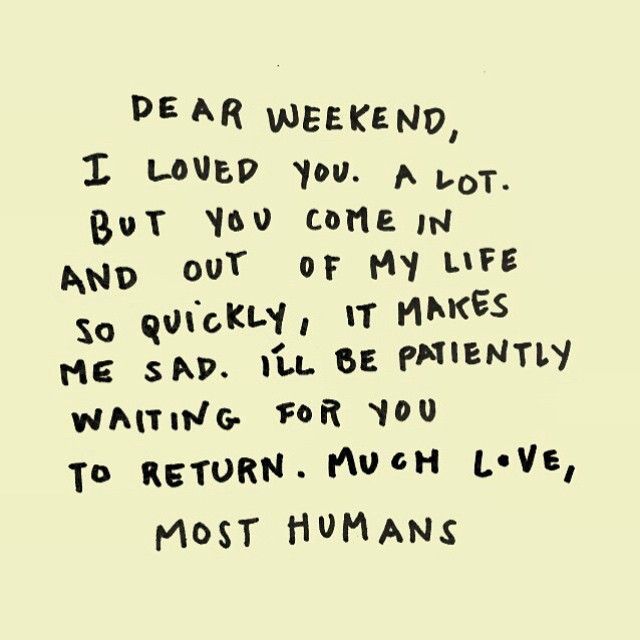 DEAR WEEKEND,
I LOVED YOU. A LOT.
BUT YOU COME IN
AND OUT OF MY LIFE
SO QUiCKLY, IT MAKES
ME SAD. I'LL BE PATIENTLY
WAITING FOR YOU
TO RETURN. MUCH LOVE,
MOST HUMANS